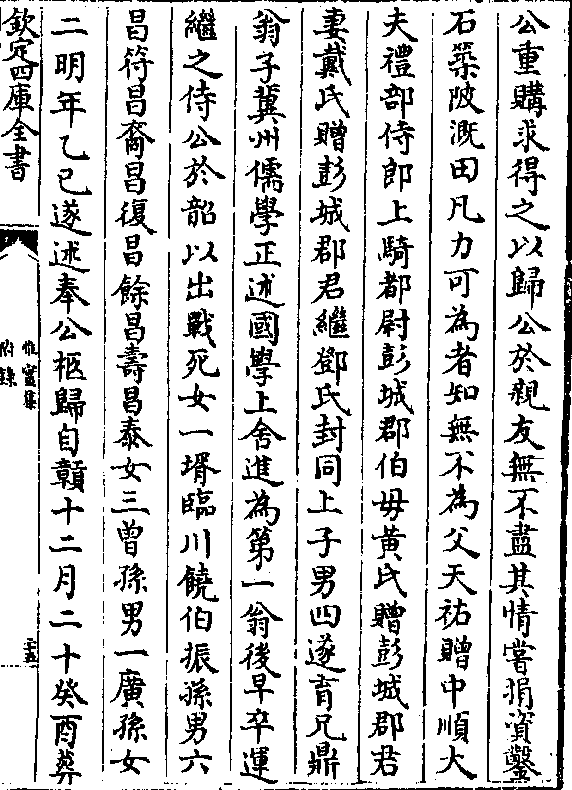 公重購求得之以歸公於親友無不盡其情嘗捐資鑿
石築陂溉田凡力可為者知無不為父天祐贈中順大
夫禮部侍郎上騎都尉彭城郡伯毋黄氏贈彭城郡君
妻戴氏贈彭城郡君繼鄧氏封同上子男四遂育兄鼎
翁子冀州儒學正述國學上舍進為第一翁後早卒運
繼之侍公於韶以出戰死女一壻臨川饒伯振孫男六
昌符昌裔昌復昌餘昌壽昌泰女三曽孫男一廣孫女
二明年乙巳遂述奉公柩歸自贑十二月二十癸酉葬
欽定四庫全書
惟實集
附錄
二五